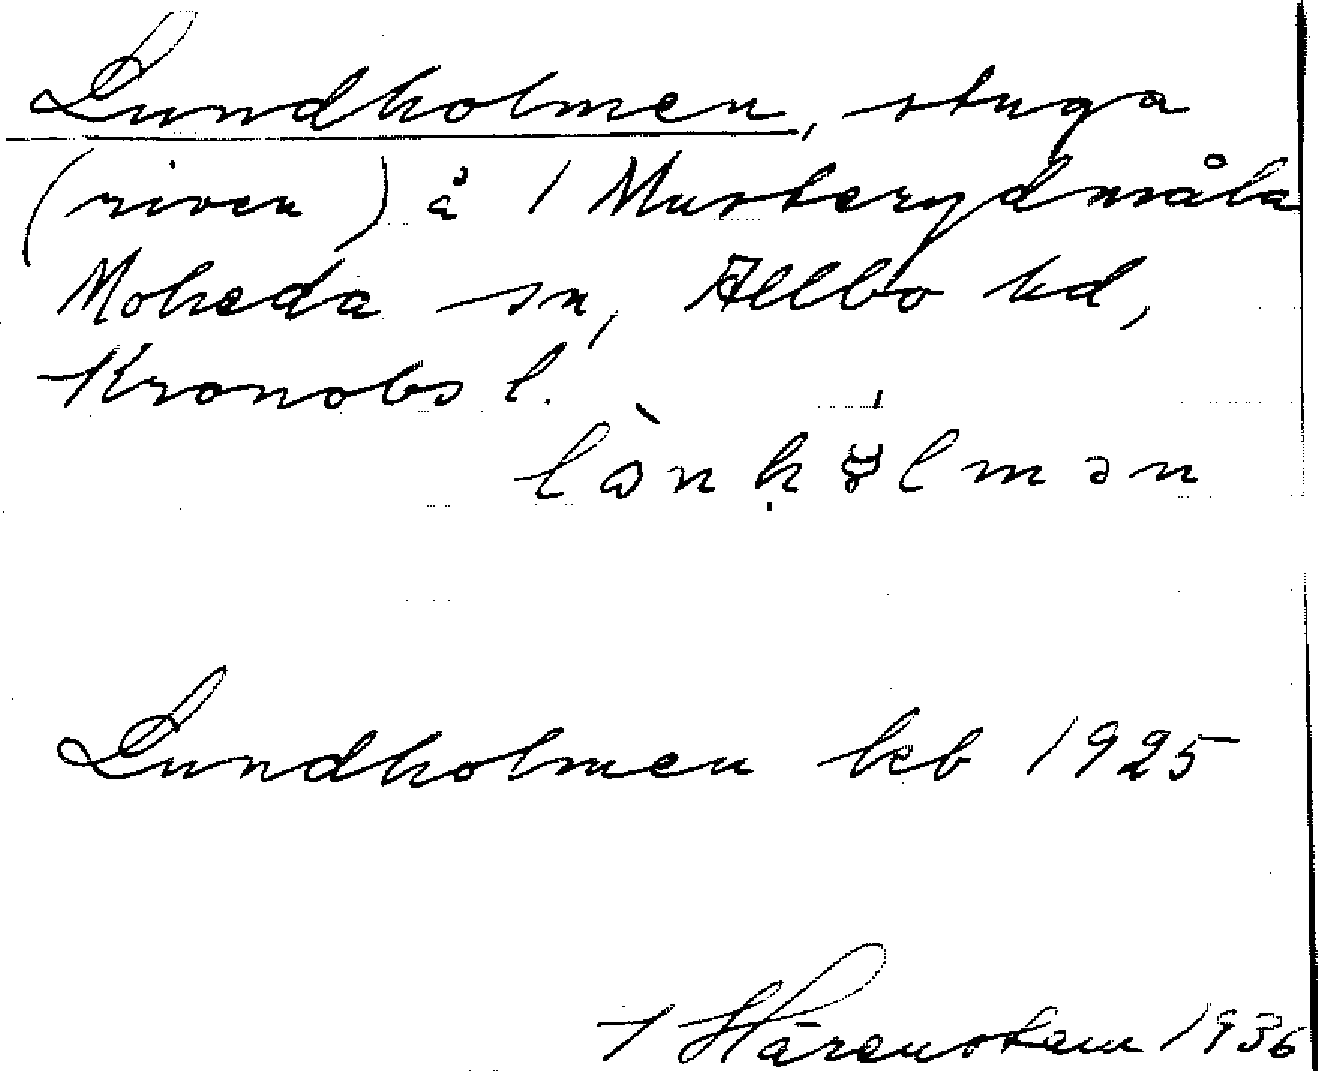 Lundholmen, stuga
(riven) å 1 Musterydmåla
Moheda sn, Allbo hd,
Kronobs l.
Lundholmen kb 1925
Härenstam 1936